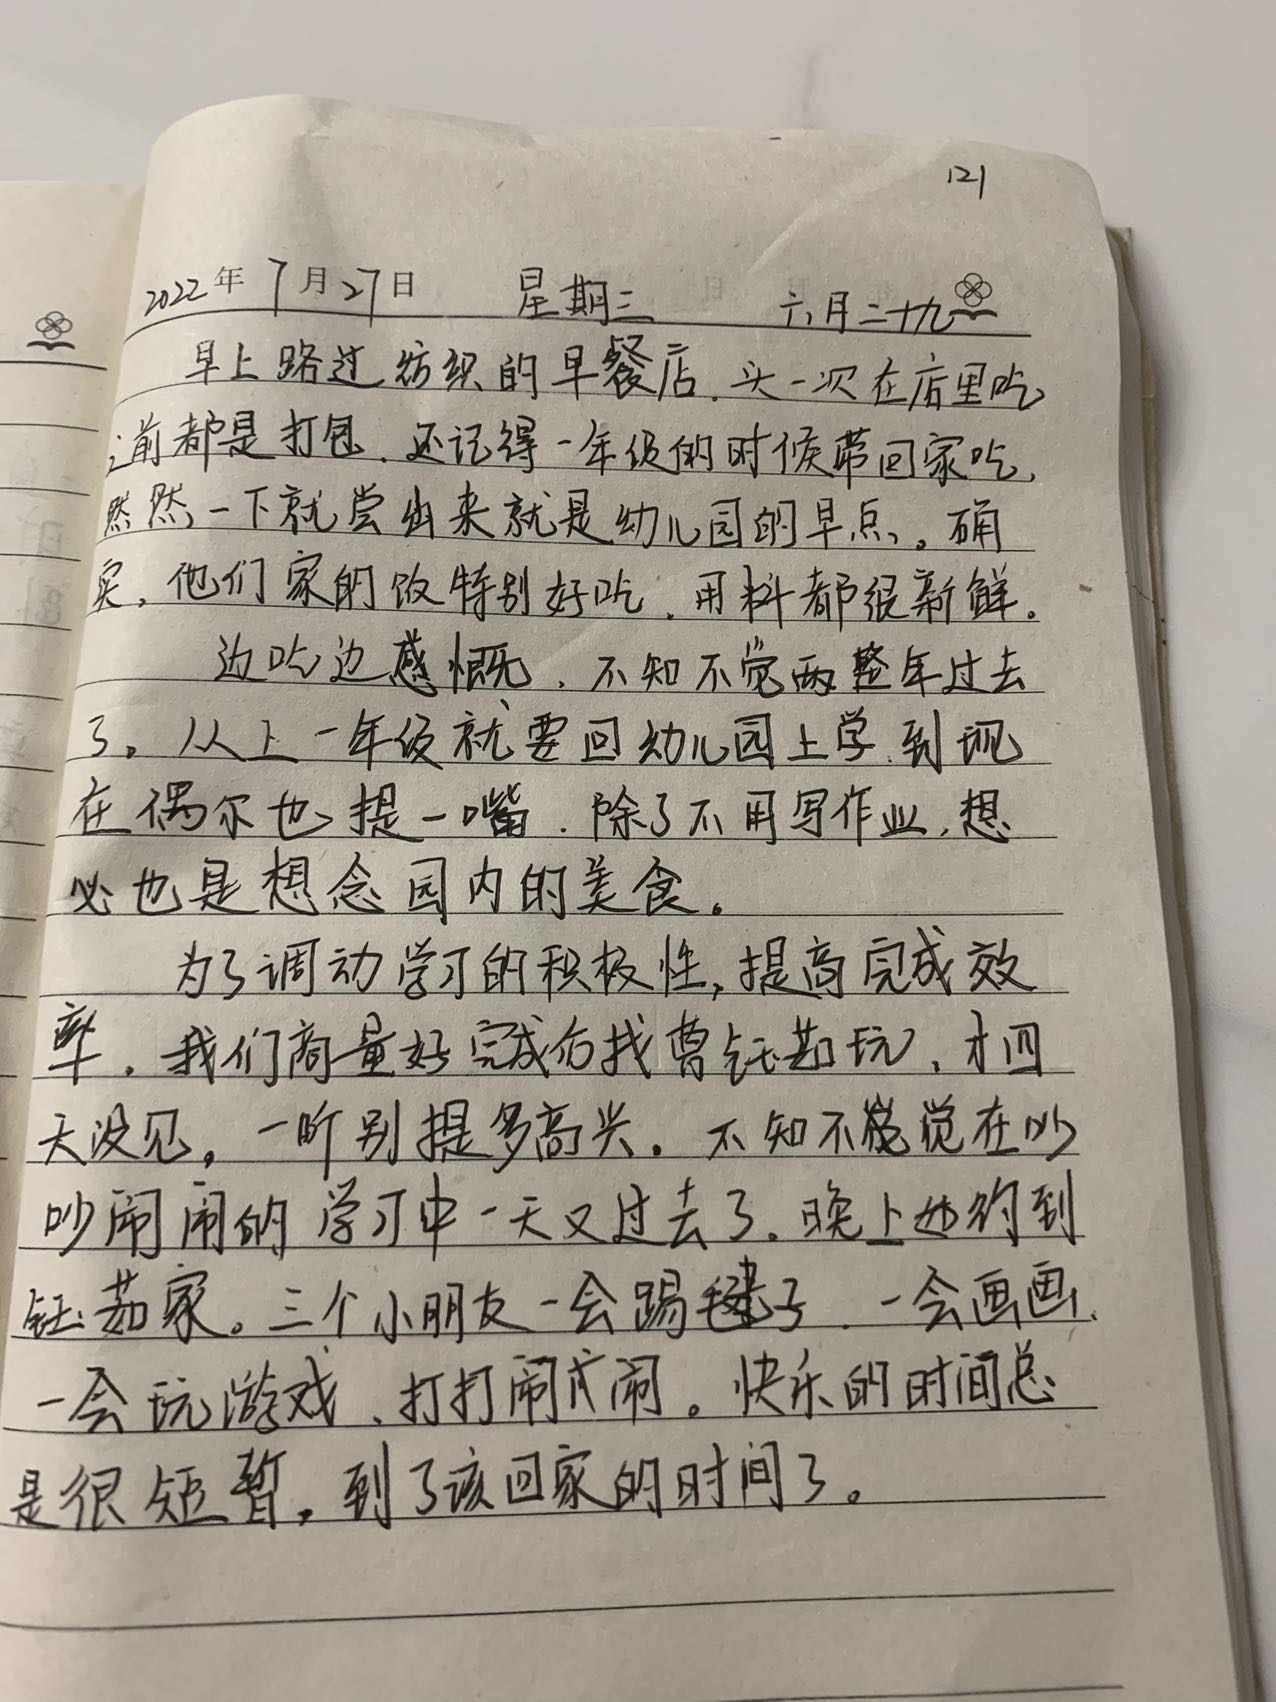 121
2022年7月27日 星期三 六月二十九
早上路过纺织的早餐店，头一次在店里吃，
之前都是打包，还记得一年级的时候带回家吃，
然然一下就尝出来就是幼儿园的早点。确
实，他们家的饭特别好吃，用料都很新鲜。
边吃边感慨，不知不觉两整年过去
了。从上一年级就要回幼儿园上学，到现
在偶尔也提一嘴，除了不用写作业，想
必也是想念园内的美食。
为了调动学习的积极性，提高完成效
率，我们商量好完成后找曹钰茹玩，才四
天没见，一听别提多高兴。不知不觉在吵
吵闹闹的学习中一天又过去了。晚上她约到
钰茹家。三个小朋友一会踢毽子，一会画画，
一会玩游戏、打打闹闹。快乐的时间总
是很短暂，到了该回家的时间了。